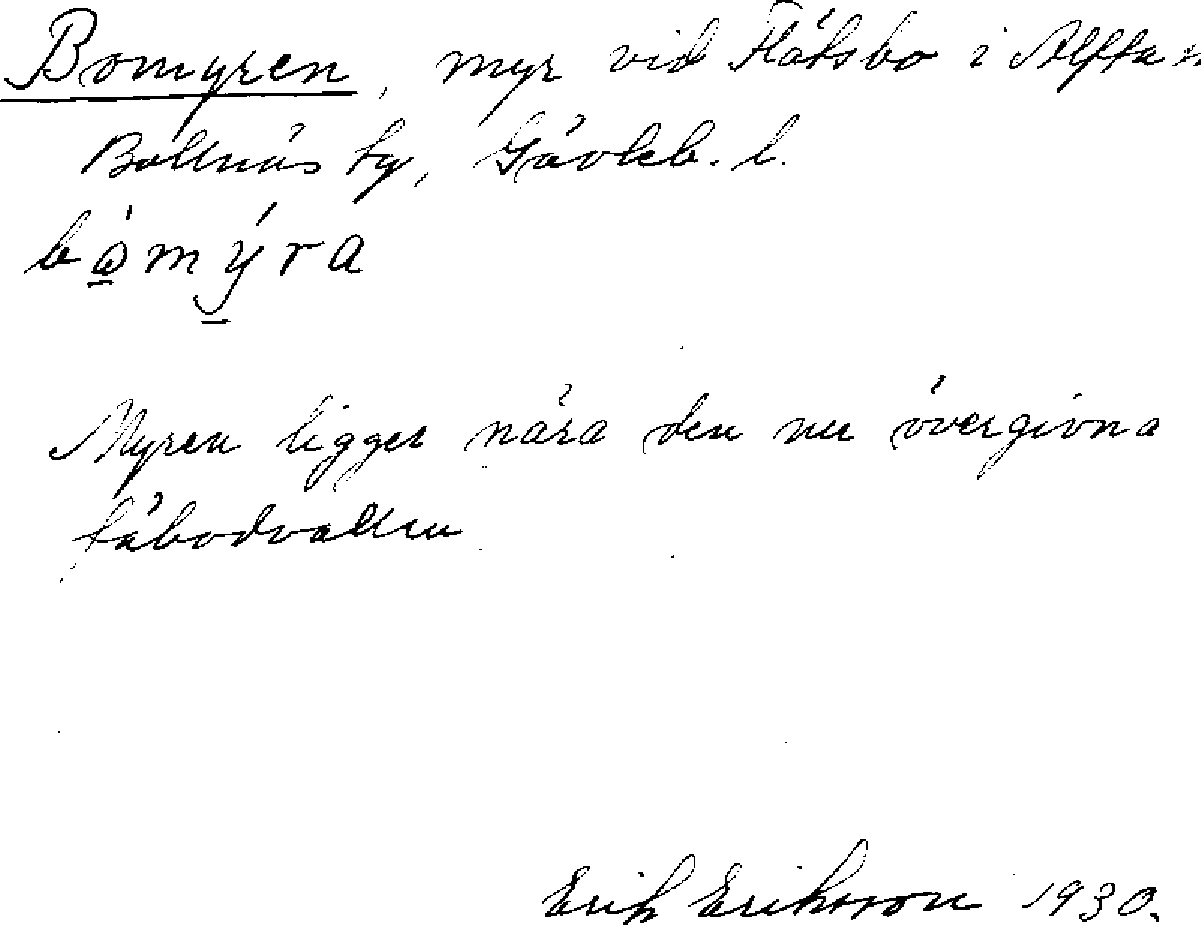 Bomyren, myr vid Flätsbo i Alfta s
Bollnäs tg, Gävleb. l.
bòmýra
Myren ligger nära den nu övergivna
fäbodvallen
Erik Eriksson 1930.